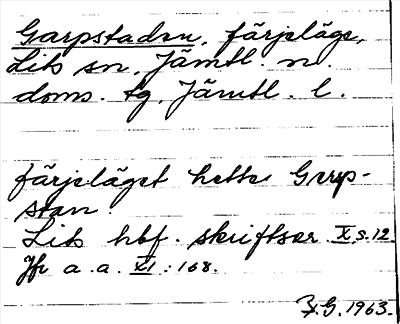 Garpstaden, färjeläge,
Lits sn, Jämtl. n.
doms. tg, Jämtl. l.
färjeläget hette Garp-
stan.
Lits hbf. skriftser. X s. 12
Jfr a. a. XI : 168.
F. G. 1963.